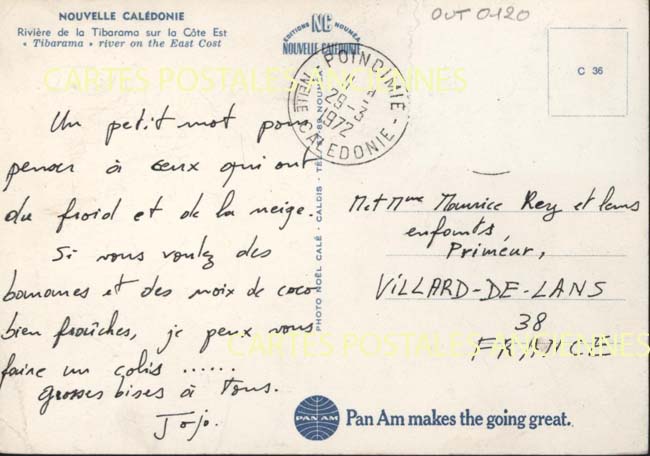 NOUVELLE CALÉDONIE
Rivière de la Tibarama sur la Côte Est
« Tibarama » river on the East Cost
EDITIONS NC NOUMÉA
NOUVELLE CALEDONIE
OUT 0120
C 36
CARTES POSTALES ANCIENNES
POINDIMIE
29-3
1972
NELLE CALEDONIE
Un petit mot pour
penser à ceux qui ont
du froid et de la neige.
Si vous voulez des
bananes et des noix de coco
bien fraîches, je peux vous
faire un colis ......
grosses bises à Tous.
Jojo.
PHOTO NOËL CALÉ - CALDIS -
M. et Mme Maurice Rey et leurs
enfants,
Primeur,
VILLARD-DE-LANS
38
FRANCE
CARTES POSTALES ANCIENNES
PAN AM
Pan Am makes the going great.